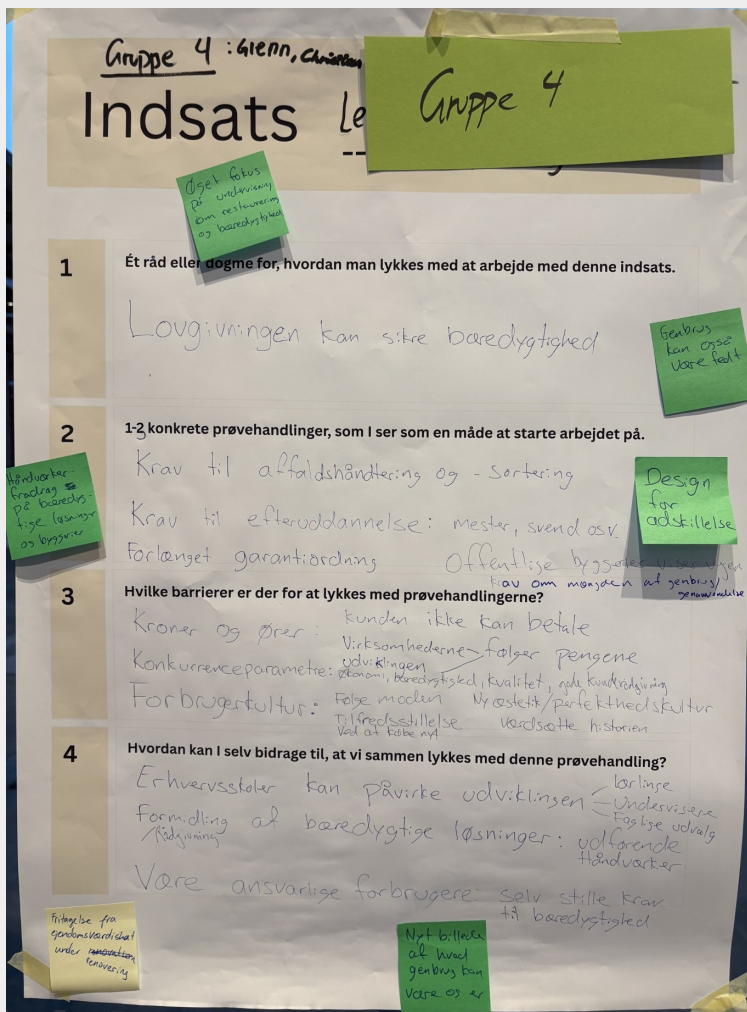 Gruppe 4 : Glenn, Christian
Gruppe 4
Indsats Le
Øget fokus
på undervisning
om restaurering
og bæredygtighed
1
Ét råd eller dogme for, hvordan man lykkes med at arbejde med denne indsats.
Lovgivningen kan sikre bæredygtighed
Genbrug
kan også
være fedt
2
1-3 konkrete prøvehandlinger, som I ser som en måde at starte arbejdet på.
Krav til affaldshåndtering og - sortering
Krav til efteruddannelse: mester, svend osv.
Forlænget garantiordning
Offentlige byggerier viser vejen
krav om mængden af genbrug/
genanvendelse
Håndværker-
fradrag
på bæredyg-
tige løsninger
og byggerier
Design
for
adskillelse
3
Hvilke barrierer er der for at lykkes med prøvehandlingerne?
Kroner og ører: kunden ikke kan betale
Virksomhederne følger pengene
udviklingen
Konkurrenceparametre: Økonomi, bæredygtighed, kvalitet, gode kunderådgivning
Forbrugerkultur: Følge moden Ny æstetik/perfekthedskultur
Tilfredsstillelse værdsætte historien
ved at købe nyt
4
Hvordan kan I selv bidrage til, at vi sammen lykkes med denne prøvehandling?
Erhvervsskoler kan påvirke udviklingen
lærlinge
Undervisere
Faglige udvalg
Formidling af bæredygtige løsninger: udførende
/Rådgivning Håndværker
Være ansvarlige forbrugere: selv stille krav
til bæredygtighed
Fritagelse fra
ejendomsværdiskat
under renovation
renovering
Nyt billede
af hvad
genbrug kan
være og er